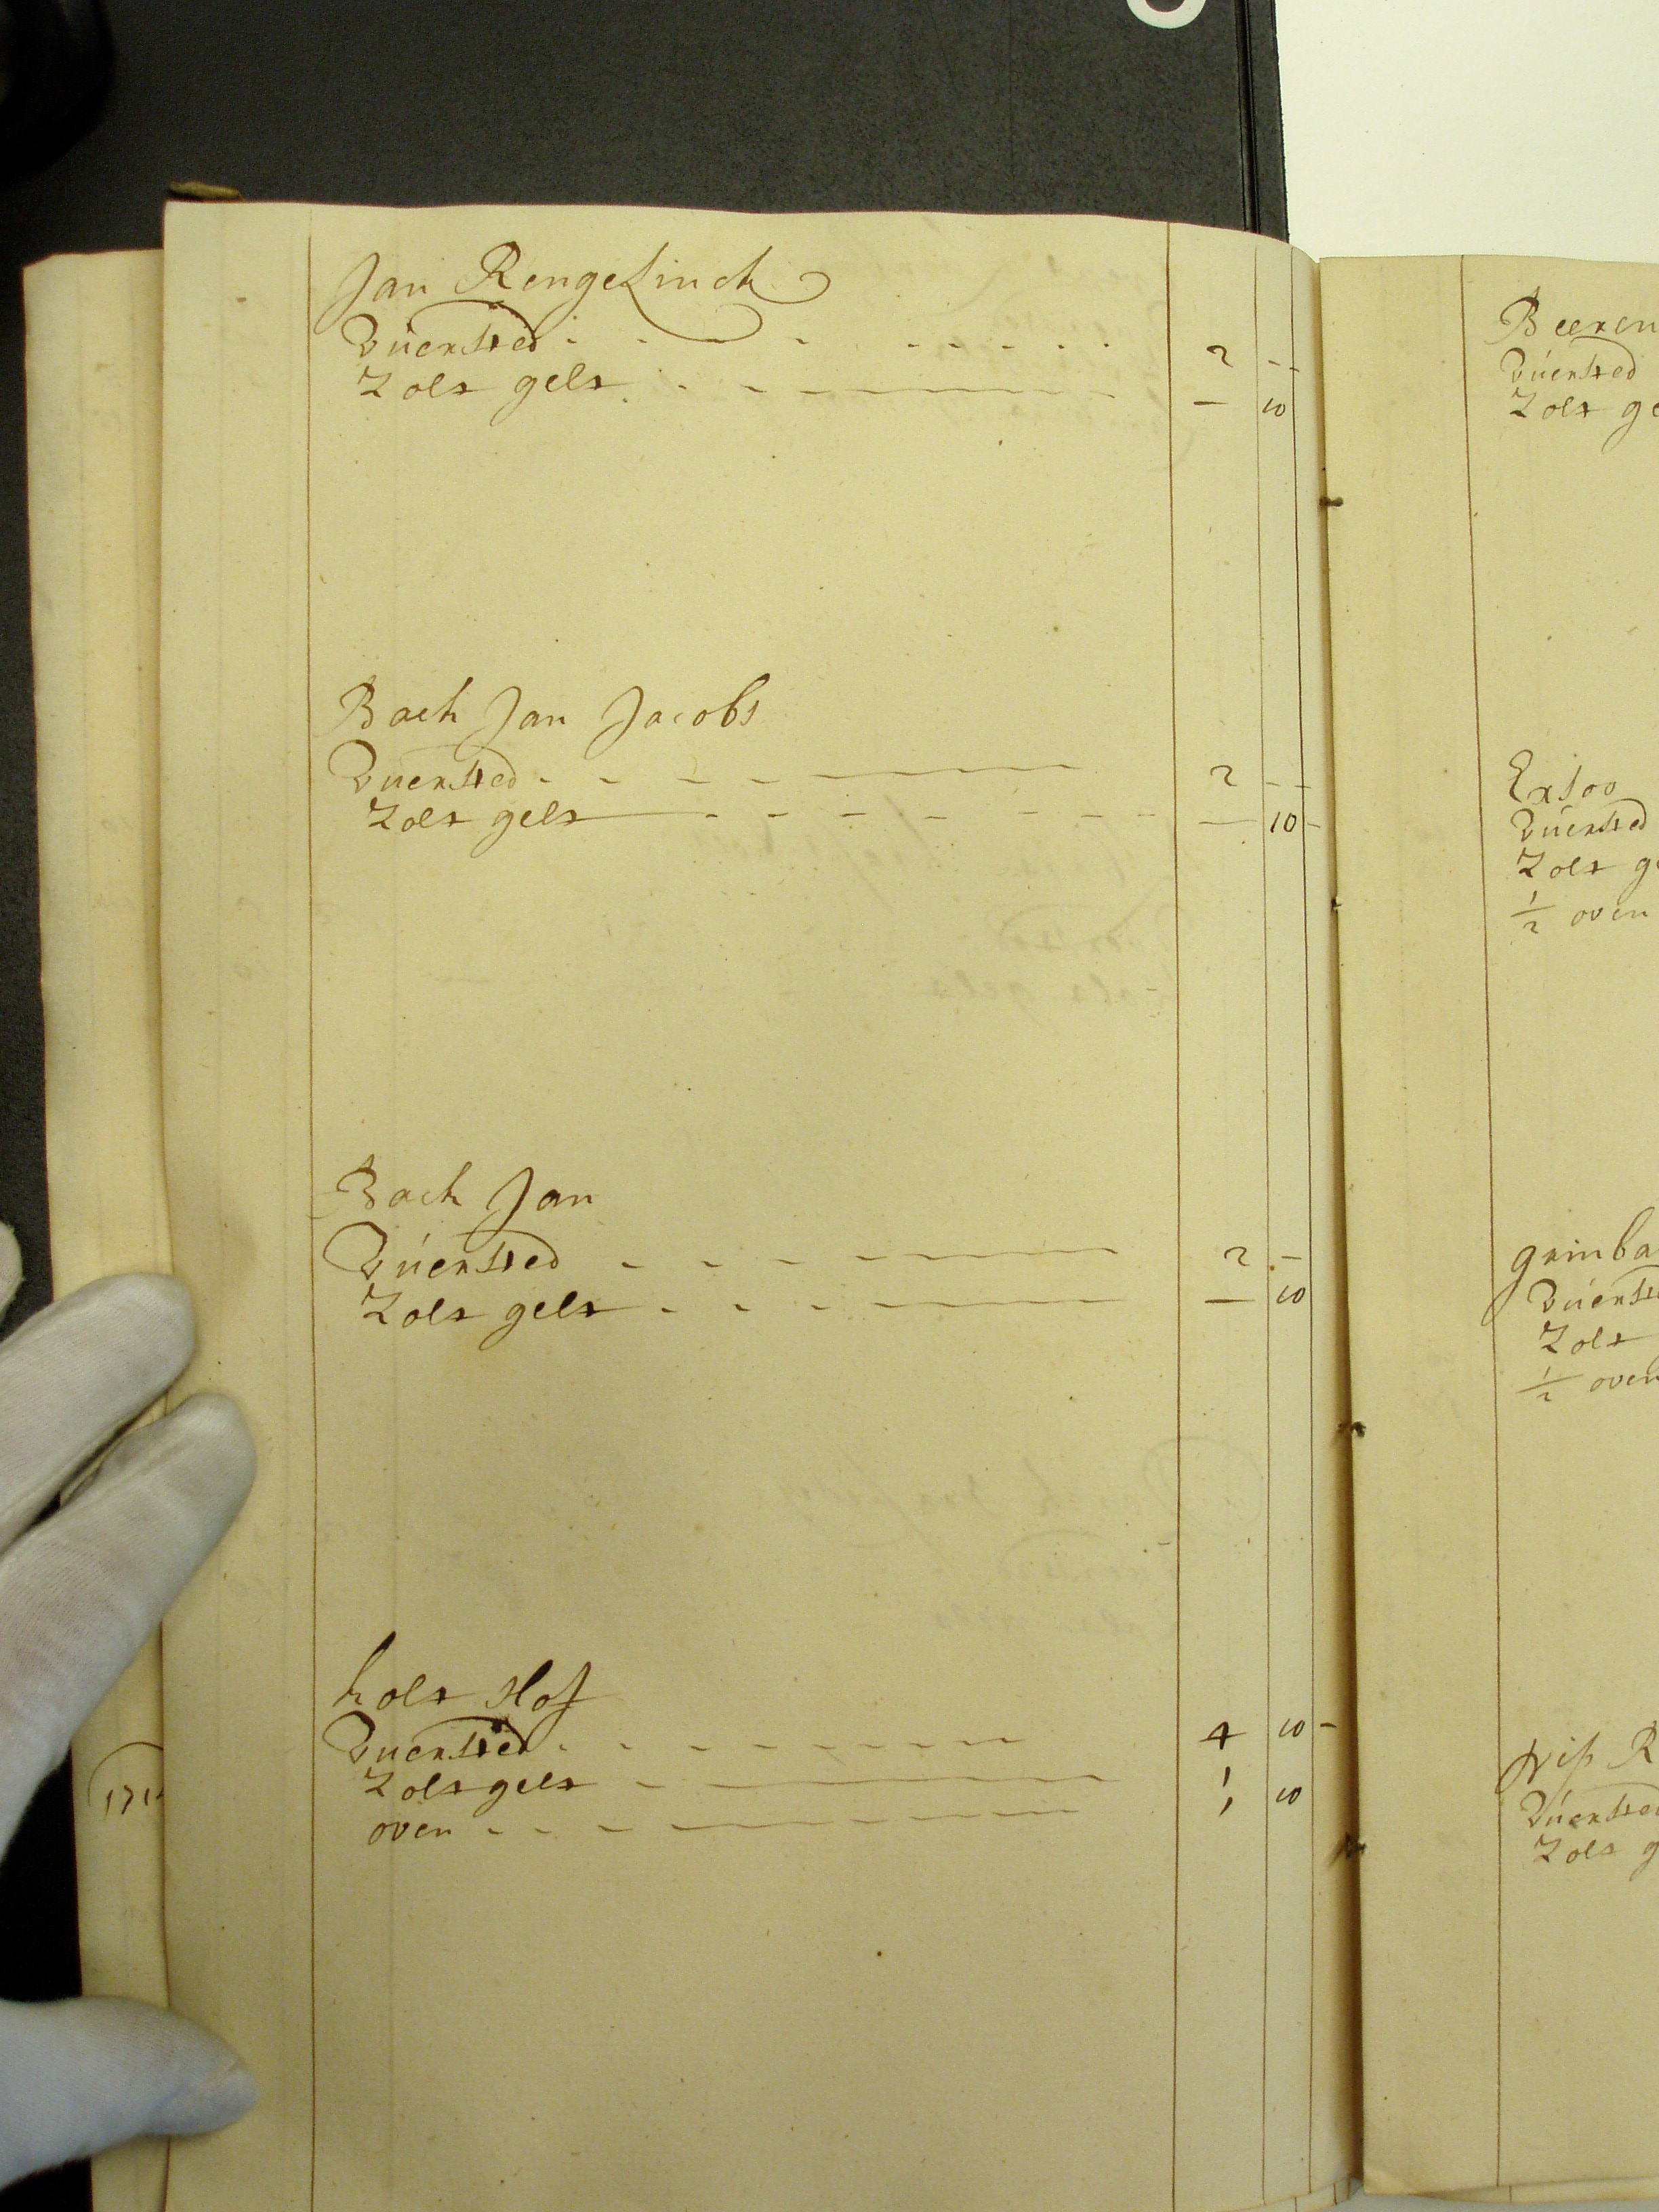 Jan Rengelinck
Vuersted 2 - -
Zols gels - 10
Bach Jan Jacobs
Vuersted 2 - -
Zols gels - 10 -
Bach Jan
Vuersted 2 -
Zols gels - 10
hols slof
Vuersted 4 10 -
Zols gels 1 10
oven 1
171
Beeren
Vuersted
Zols ge
Exloo
Vuersted
Zols ge
1/2 oven
grimba
Vuerste
Zols
1/2 oven
R
Vuersted
Zols g